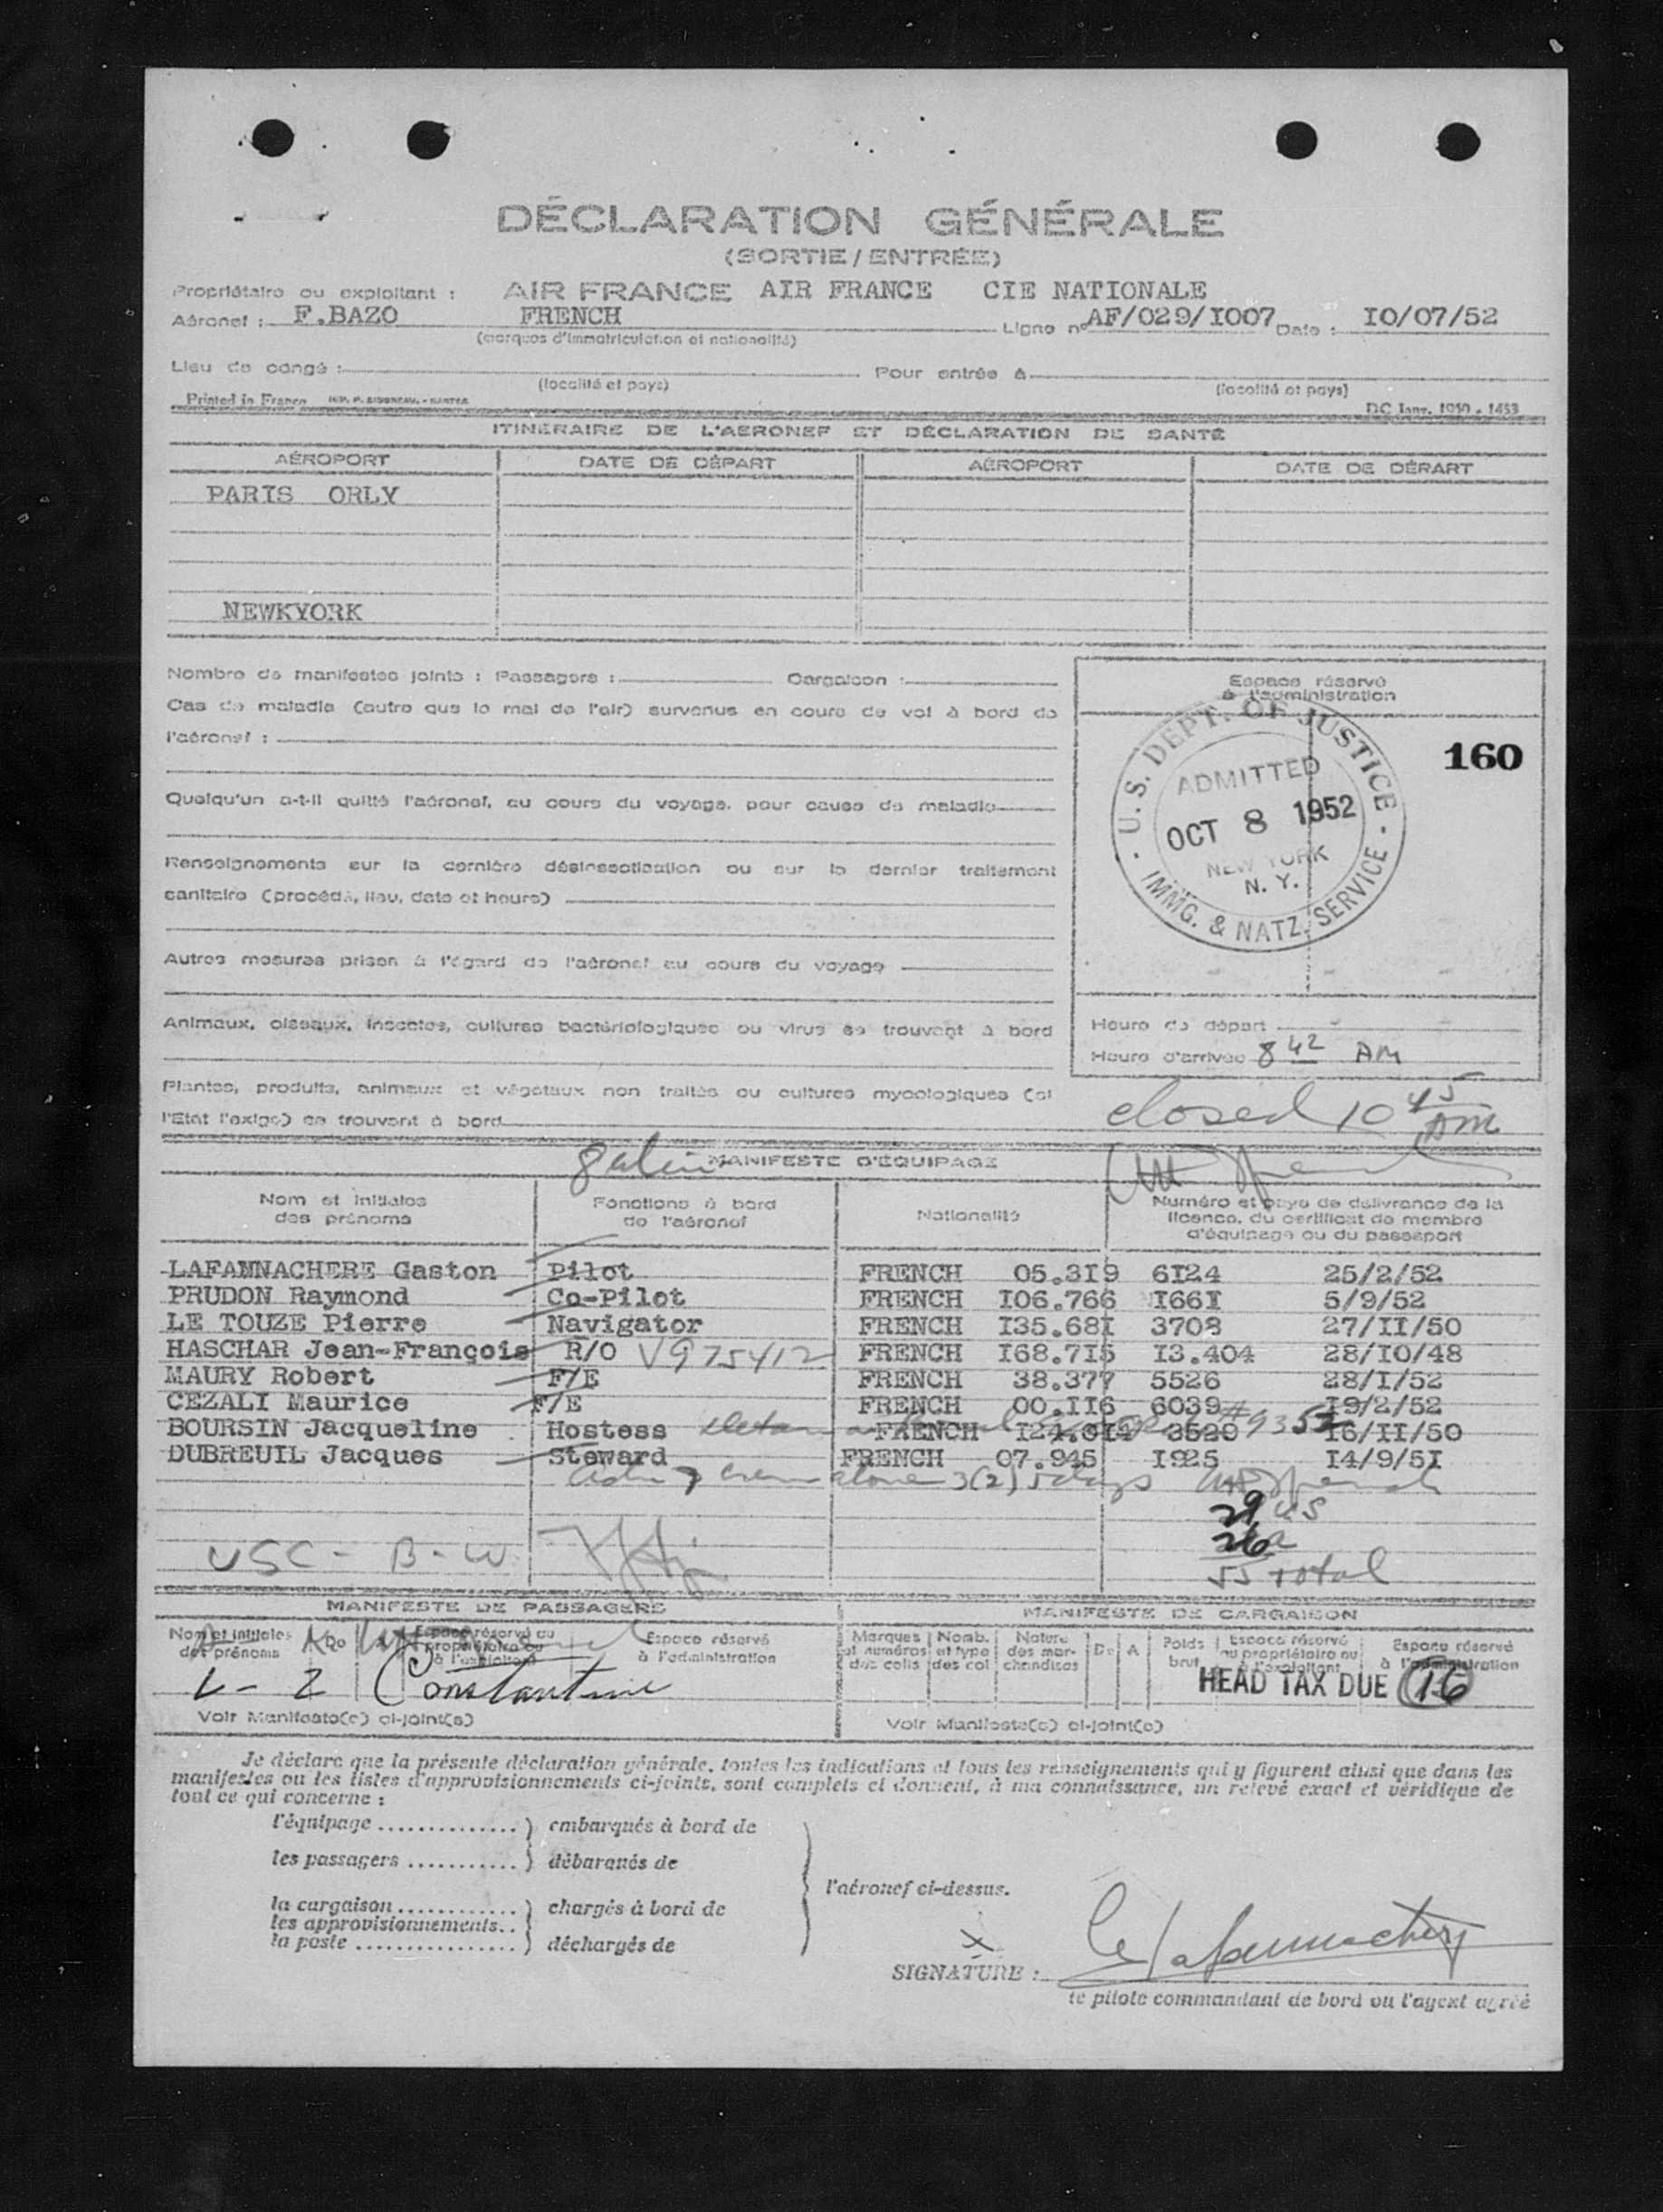 DÉCLARATION GÉNÉRALE
(SORTIE / ENTRÉE)
Propriétaire ou exploitant : AIR FRANCE AIR FRANCE CIE NATIONALE
Aéronef : F.BAZO FRENCH Ligne n° AF/029/I007 Date : IO/07/52
(marques d'immatriculation et nationalité)
Lieu de congé : Pour entrée à
(localité et pays) (localité et pays)
Printed in France DC Janv. 1950 - 1453
ITINÉRAIRE DE L'AÉRONEF ET DÉCLARATION DE SANTÉ
AÉROPORT DATE DE DÉPART AÉROPORT DATE DE DÉRART
PARIS ORLY
NEWKYORK
Nombre de manifestes joints : Passagers : Cargaison :
Cas de maladie (autre que le mal de l'air) survenus en cours de vol à bord de
l'aéronef :
Quelqu'un a-t-il quitté l'aéronef, au cours du voyage, pour cause de maladie
Renseignements sur la dernière désinsectisation ou sur le dernier traitement
sanitaire (procédé, lieu, date et heure)
Autres mesures prises à l'égard de l'aéronef au cours du voyage
Animaux, oiseaux, insectes, cultures bactériologiques ou virus se trouvant à bord
Plantes, produits, animaux et végétaux non traités ou cultures mycologiques (si
l'Etat l'exige) se trouvant à bord
Espace réservé
à l'administration
160
U.S. DEPT. OF JUSTICE
ADMITTED
OCT 8 1952
NEW YORK
N. Y.
IMMG. & NATZ. SERVICE
Heure de départ
Heure d'arrivée 8 42 AM
closed 10 45 AM
MANIFESTE D'ÉQUIPAGE
Nom et initiales des prénoms
Fonctions à bord de l'aéronef
Nationalité
Numéro et pays de délivrance de la licence, du certificat de membre d'équipage ou du passeport
LAFANNACHERE Gaston Pilot FRENCH 05.3I9 6I24 25/2/52
PRUDON Raymond Co-Pilot FRENCH I06.766 I66I 5/9/52
LE TOUZE Pierre Navigator FRENCH I35.68I 3708 27/II/50
HASCHAR Jean-François R/O V975412 FRENCH I68.7I5 I3.404 28/I0/48
MAURY Robert F/E FRENCH 38.377 5526 28/I/52
CEZALI Maurice F/E FRENCH 00.II6 6039 I9/2/52
BOURSIN Jacqueline Hostess FRENCH I24.0I4 3520 I6/II/50
DUBREUIL Jacques Steward FRENCH 07.945 I925 I4/9/5I
3(2) 5 days
29 US
26 a
55 Total
USC - B - W
MANIFESTE DE PASSAGERS MANIFESTE DE CARGAISON
Nom et initiales des prénoms
De
Espace réservé au propriétaire ou à l'exploitant
Espace réservé à l'administration
Marques et numéros des colis
Nomb. et type des col
Nature des marchandises
De
A
Poids brut
Espace réservé au propriétaire ou à l'exploitant
Espace réservé à l'administration
L - 2 Constantine
HEAD TAX DUE 16
Voir Manifeste(s) ci-joint(s) Voir Manifeste(s) ci-joint(s)
Je déclare que la présente déclaration générale, toutes les indications et tous les renseignements qui y figurent ainsi que dans les
manifestes ou les listes d'approvisionnements ci-joints, sont complets et donnent, à ma connaissance, un relevé exact et véridique de
tout ce qui concerne :
l'équipage .............. ) embarqués à bord de
les passagers ........... ) débarqués de
l'aéronef ci-dessus.
la cargaison ............ ) chargés à bord de
les approvisionnements..
la poste ................ ) déchargés de
X
SIGNATURE : Lafannachere
le pilote commandant de bord ou l'agent agréé